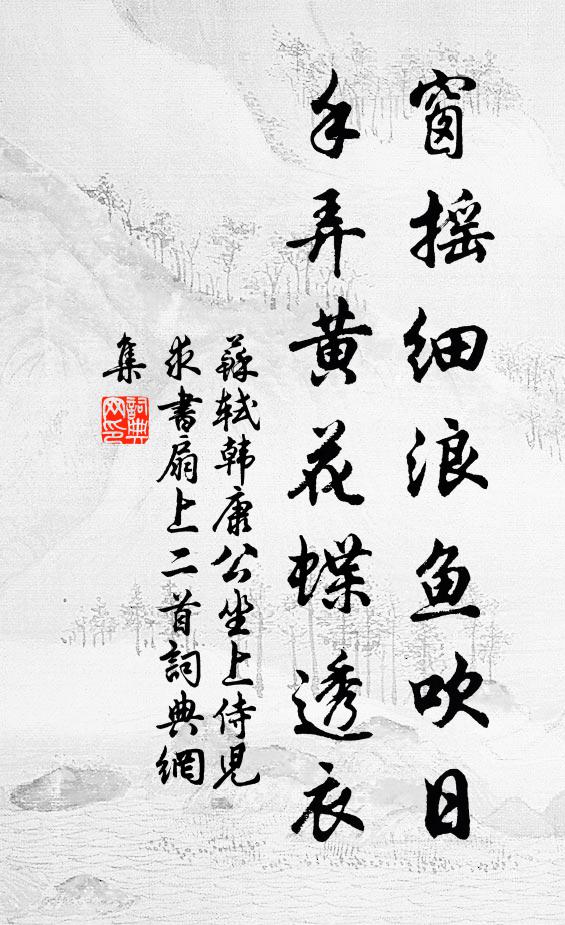 窗摇细浪鱼吹日
手弄黄花蝶透衣
蘇轼韩康公坐上侍児
求書扇上二首詞典網
集
詞典
网印